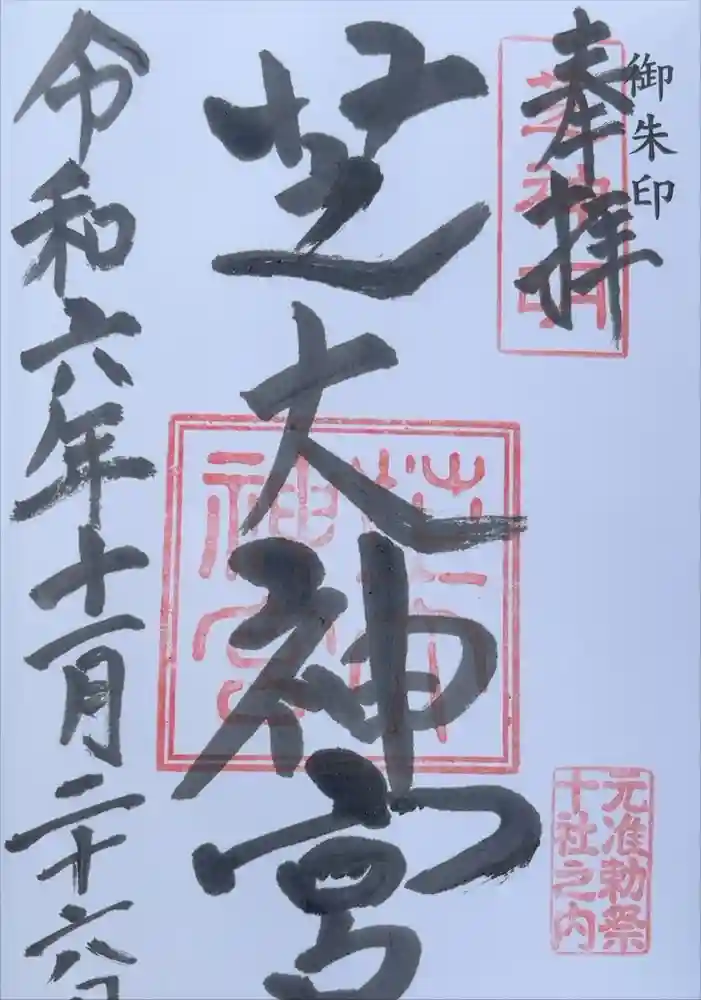 御朱印
奉拝
芝神明
芝大神宮
芝大神宮
元准勅祭
十社之内
令和六年十一月二十六日